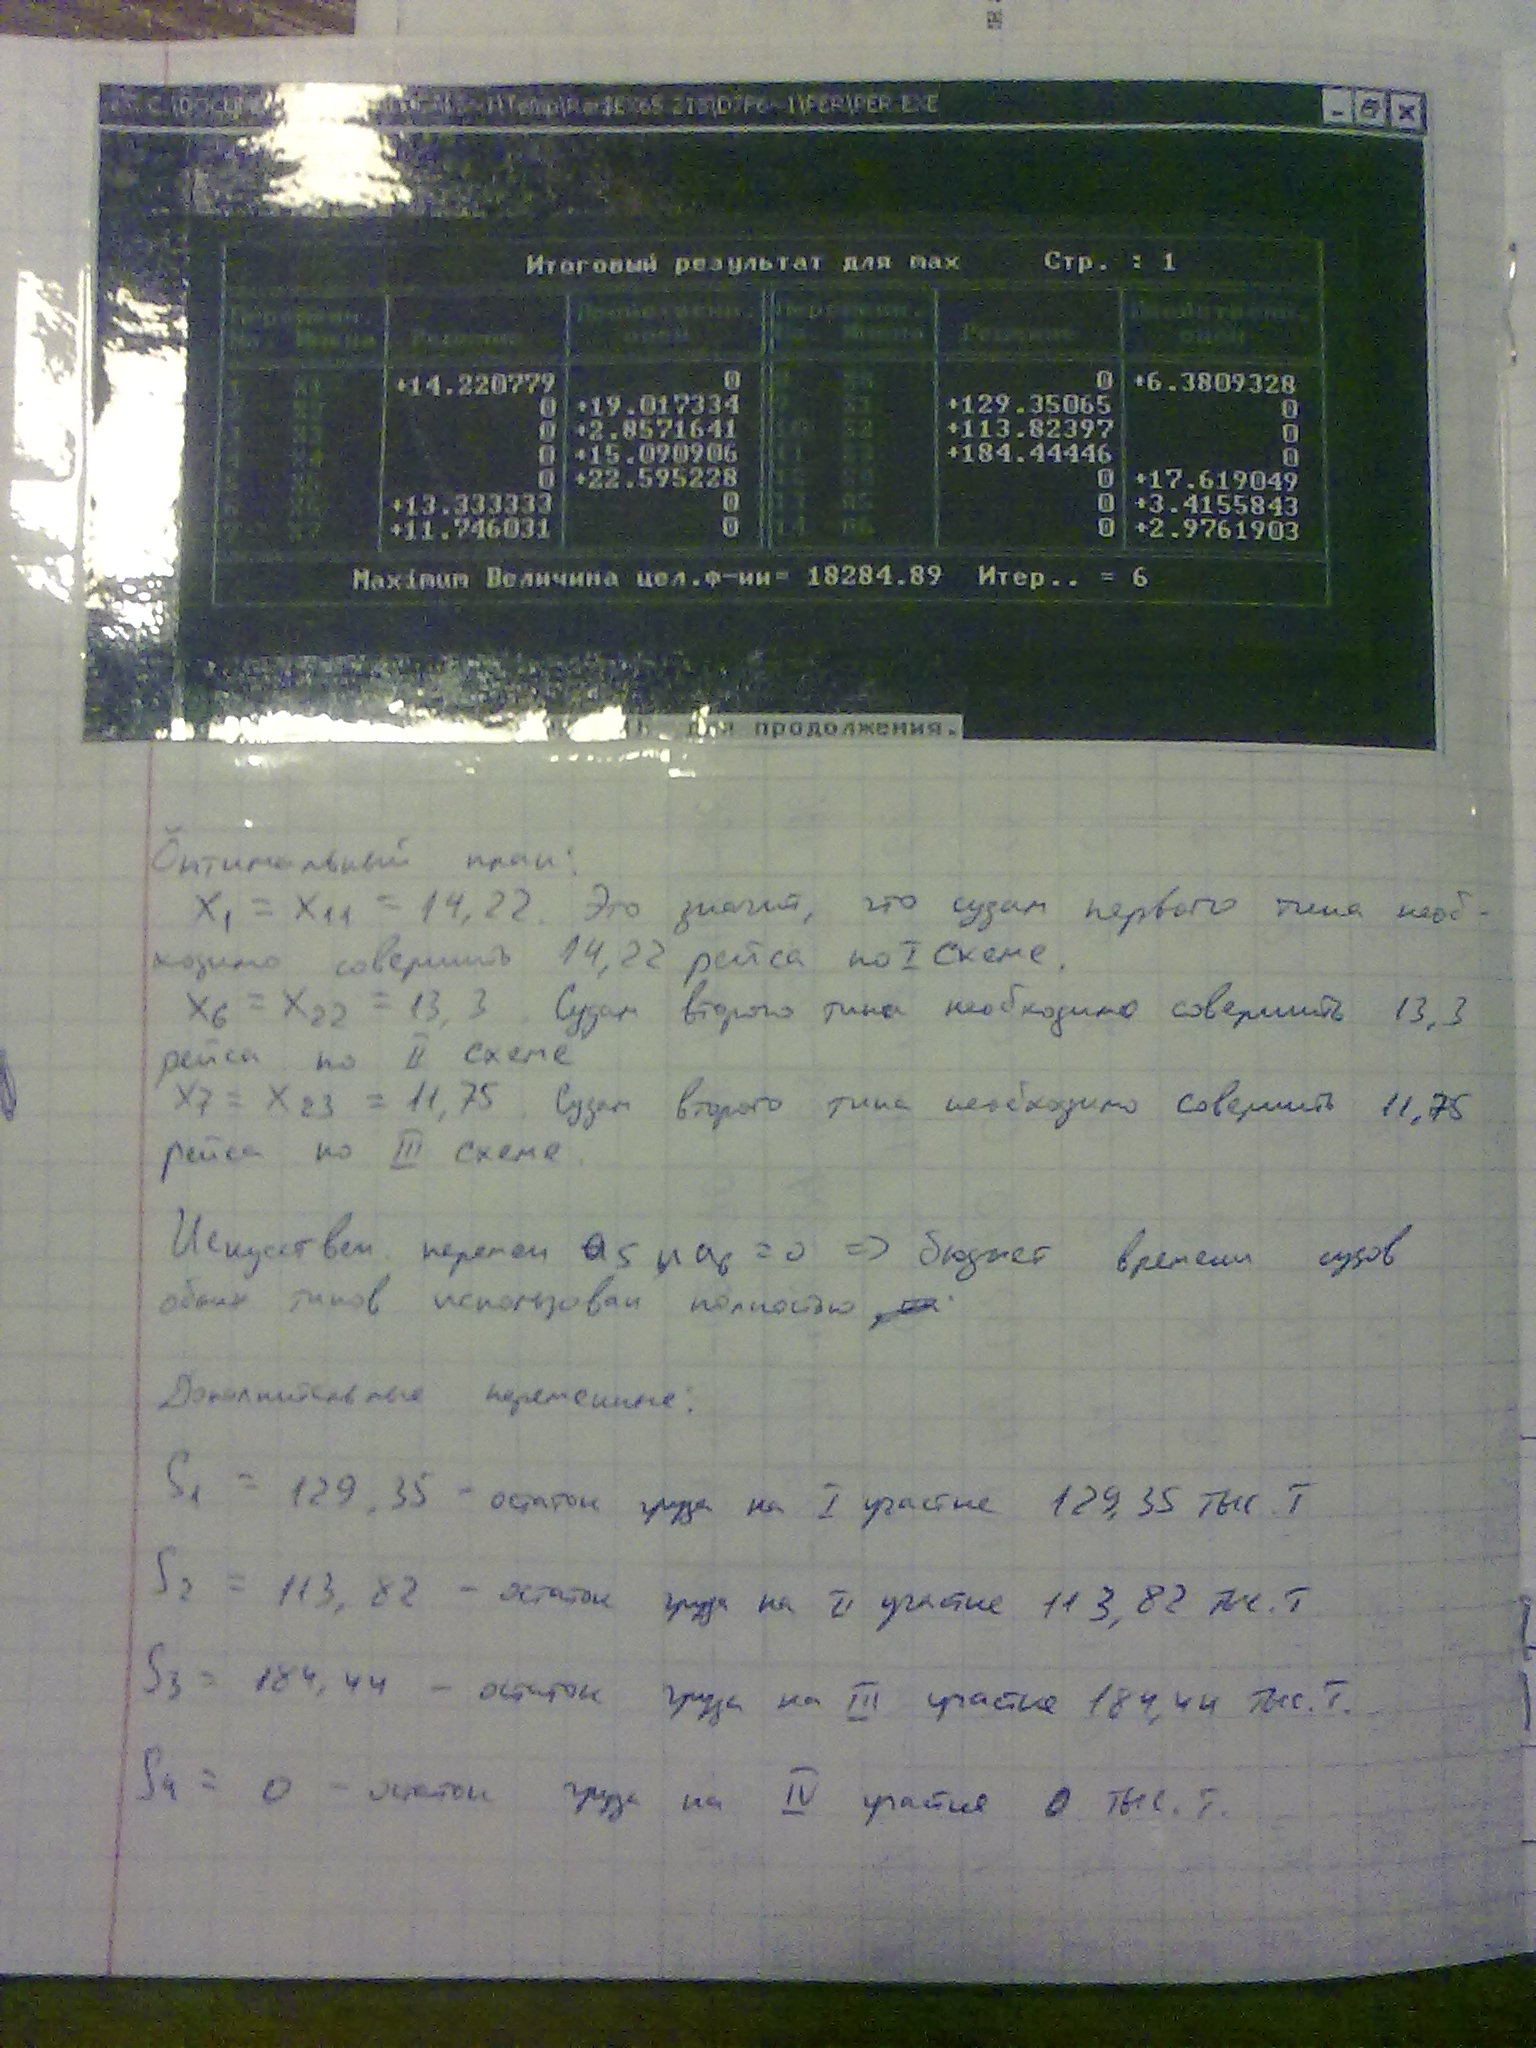 C:\DOCUME \Temp\Rar$EX65.218\D7P6~1\PER\PER.EXE
Итоговый результат для max Стр. : 1
Переменн. Двойственн. Переменн. Двойственн.
No. Имена Решение оцен. No. Имена Решение оцен.
1 X1 +14.220779 0 8 0 +6.3809328
2 X2 0 +19.017334 9 S1 +129.35065 0
3 X3 0 +2.8571641 10 S2 +113.82397 0
4 X4 0 +15.090906 11 S3 +184.44446 0
5 X5 0 +22.595228 12 S4 0 +17.619049
6 X6 +13.333333 0 13 A5 0 +3.4155843
7 X7 +11.746031 0 14 A6 0 +2.9761903
Maximum Величина цел.ф-ии= 18284.89 Итер.. = 6
для продолжения.
Оптимальный план:
X1 = X11 = 14,22. Это значит, что судам первого типа необ-
ходимо совершить 14,22 рейса по I схеме.
X6 = X22 = 13,3. Судам второго типа необходимо совершить 13,3
рейса по II схеме
X7 = X23 = 11,75. Судам второго типа необходимо совершить 11,75
рейса по III схеме.
Искуствен. перемен a5 и a6 = 0 => бюджет времени судов
обоих типов использован полностью
Дополнительные переменные:
S1 = 129,35 - остаток груза на I участке 129,35 тыс. т
S2 = 113,82 - остаток груза на II участке 113,82 тыс. т
S3 = 184,44 - остаток груза на III участке 184,44 тыс. т.
S4 = 0 - остаток груза на IV участке 0 тыс. т.